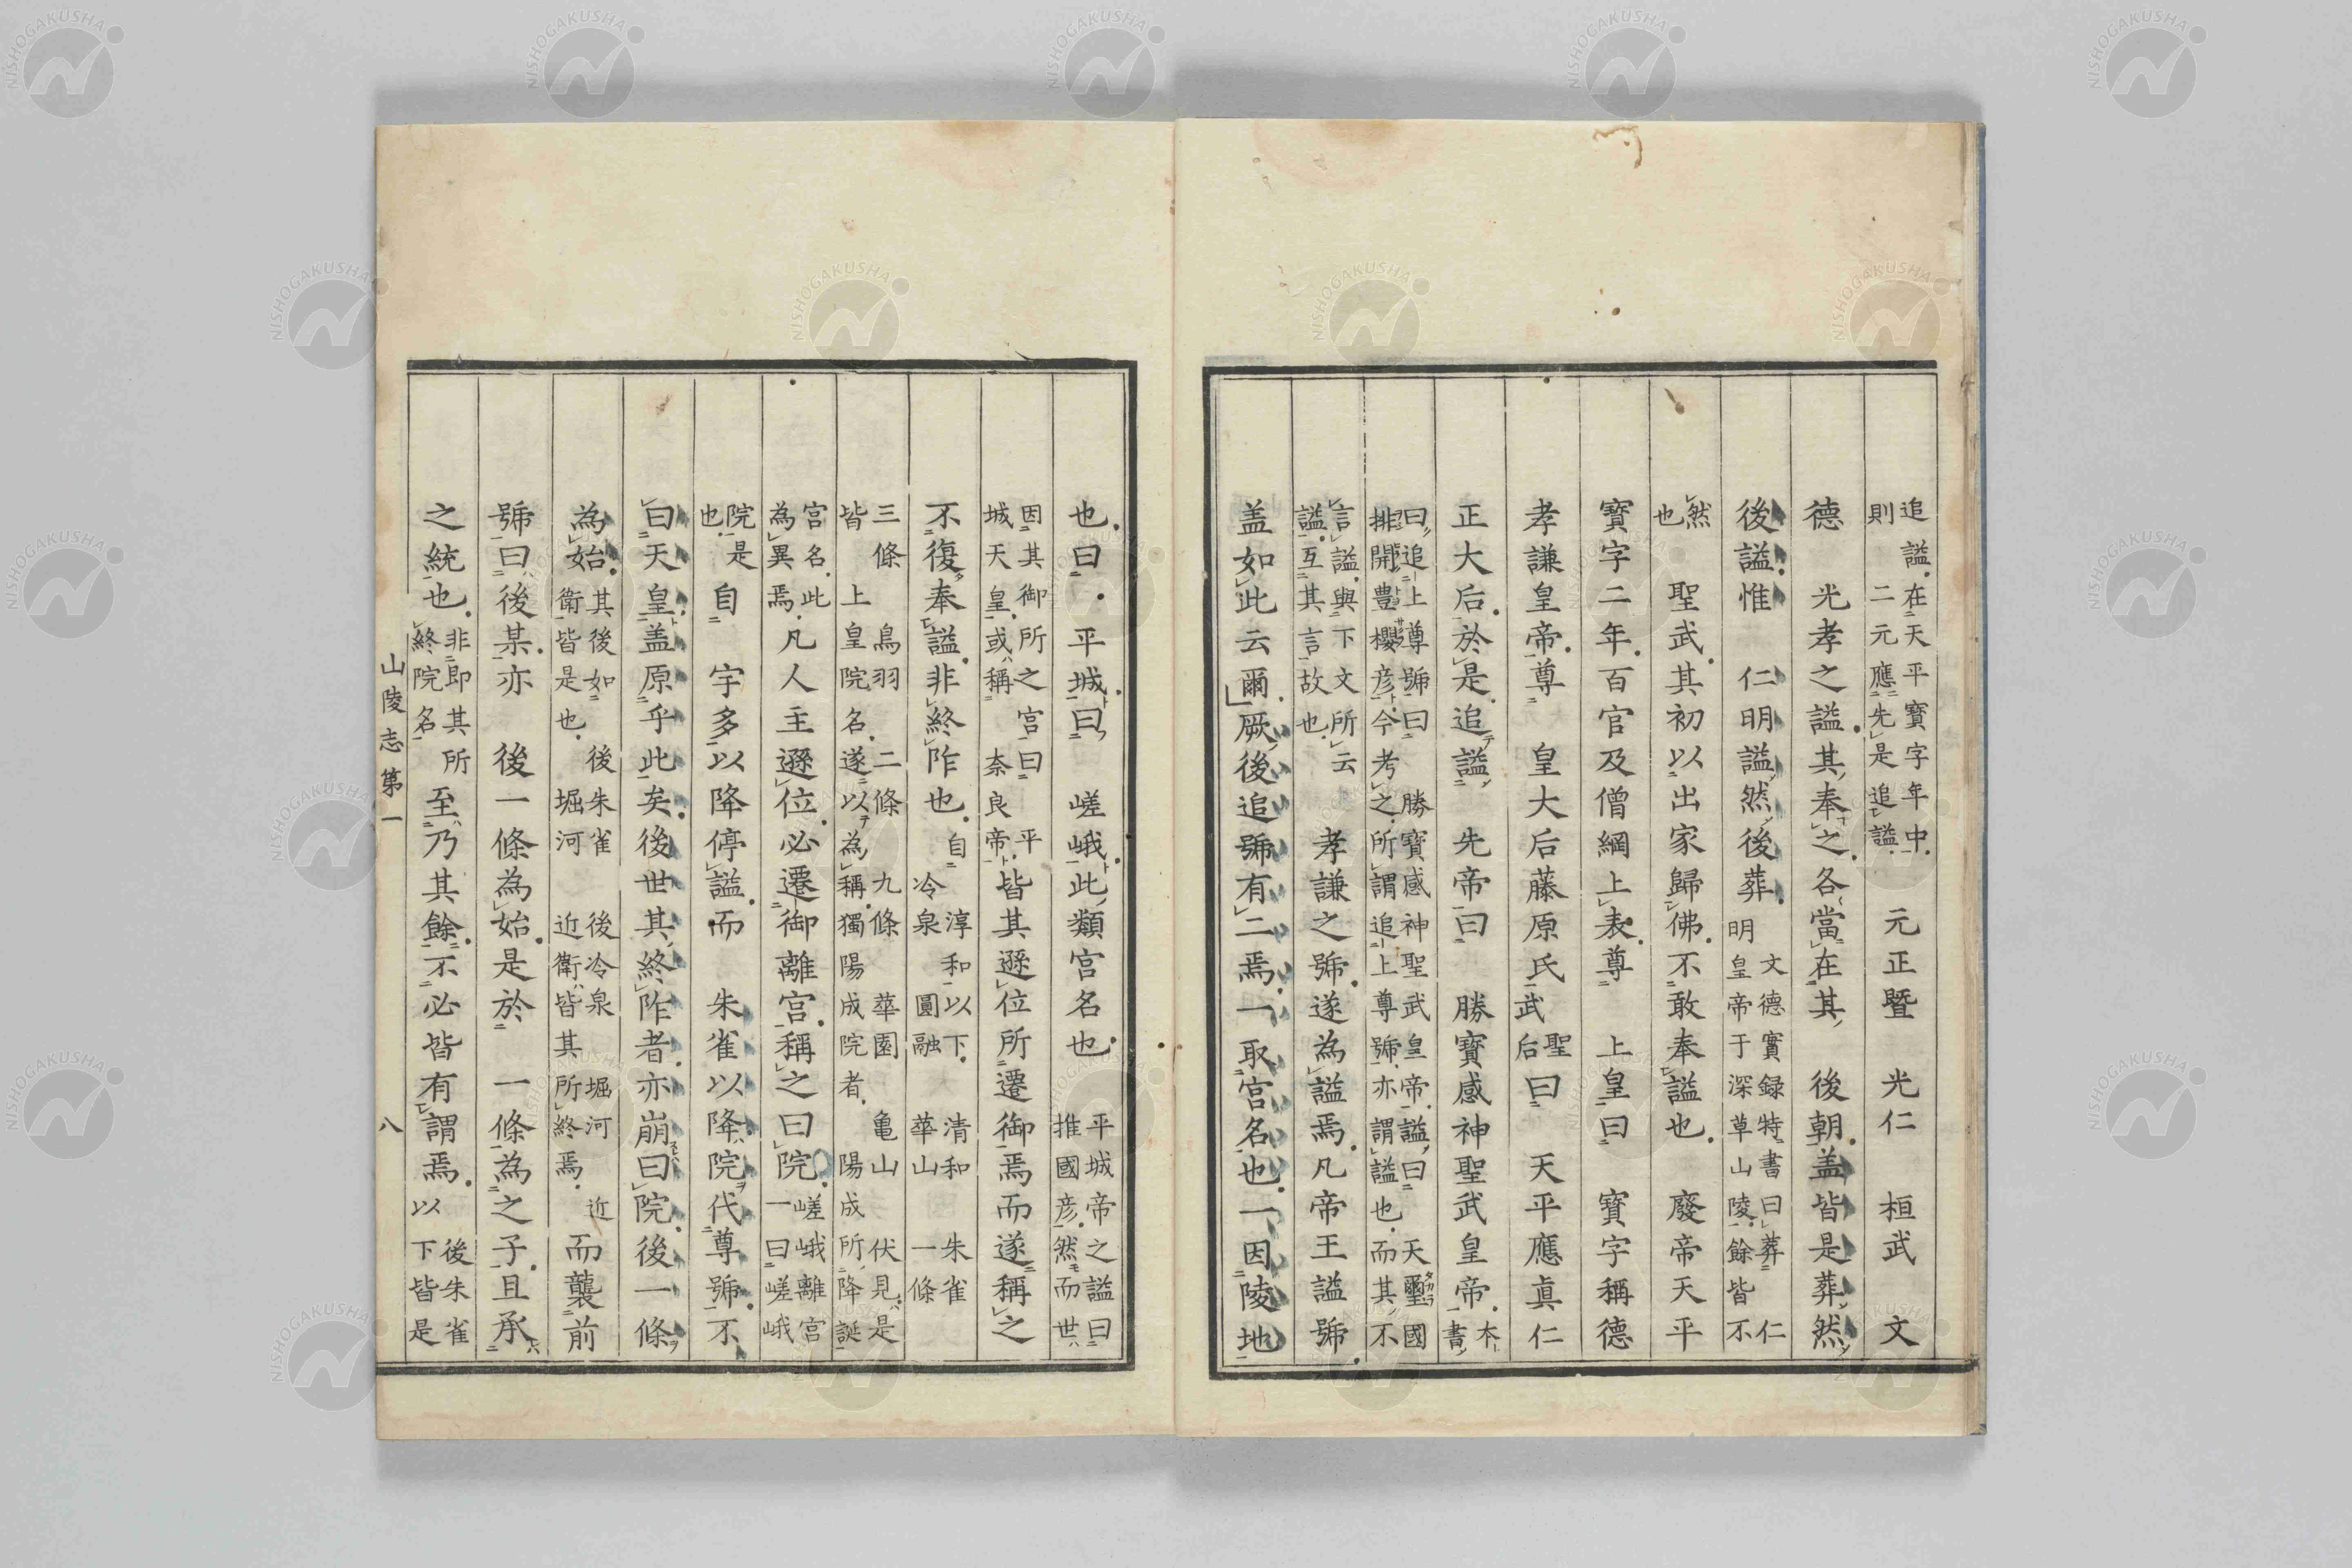 追謚在天平寶字年中
則二元應先是追謚
元正曁　光仁　桓武　文
德　光孝之謚其奉之各當在其　後朝盖皆是葬然
後謚惟　仁明謚然後葬
文德實録特書曰葬　仁
明皇帝于深草山陵餘皆不
然
也
聖武其初以出家歸佛不敢奉謚也　廢帝天平
寶字二年百官及僧綱上表尊　上皇曰　寶字稱德
孝謙皇帝尊　皇大后藤原氏
聖
武后
曰　天平應眞仁
正大后於是追謚　先帝曰　勝寶感神聖武皇帝
本
書
曰追上尊號曰　勝寶感神聖武皇帝謚曰　天璽國
排開豊櫻彦今考之所謂追上尊號亦謂謚也而其不
言謚與下文所云
謚互其言故也
孝謙之號遂為謚焉凡帝王謚號
盖如此云爾厥後追號有二焉一取宮名也一因陵地
也曰　平城曰　嵯峨此類宮名也
平城帝之謚曰
推國彦然而世
因其御所之宮曰　平
城天皇或稱　奈良帝
皆其遜位所遷御焉而遂稱之
不復奉謚非終阼也
自　淳和以下　清和　朱雀
冷泉　圓融　華山　一條
三條　鳥羽　二條　九條　華園　亀山　伏見是
皆　上皇院名遂以為稱獨陽成院者　陽成所降誕
宮名此
為異焉
凡人主遜位必遷御離宮稱之曰院
嵯峨離宮
一曰嵯峨
院是
也
自　宇多以降停謚而　朱雀以降院代尊號不
曰天皇盖原乎此矣後世其終阼者亦崩曰院後一條
為始
其後如　後朱雀　後冷泉　堀河　近
衛皆是也　堀河　近衛皆其所終焉
而襲前
號曰後某亦　後一條為始是於　一條為之子且承
之統也
非即其所
終院名
至乃其餘不必皆有謂焉
後朱雀
以下皆是
山陵志第一　八